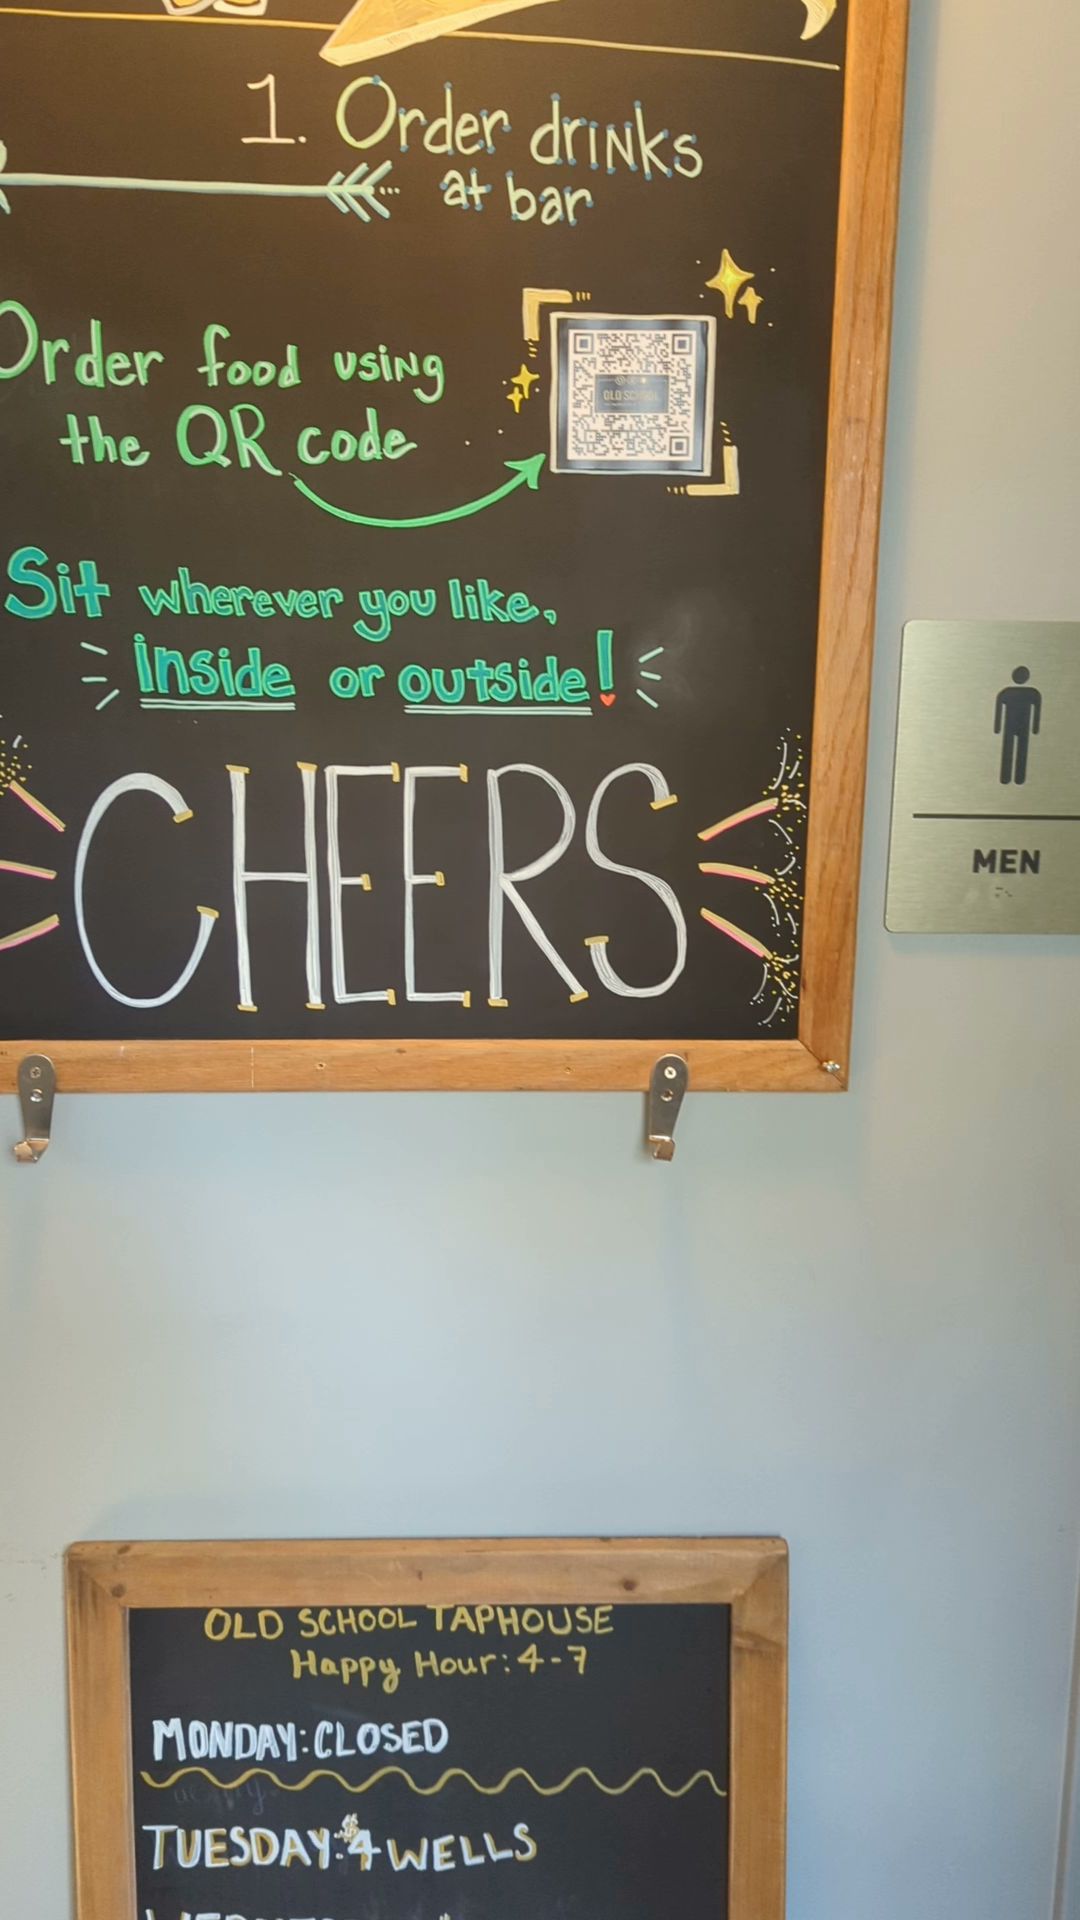 1. Order drinks
at bar
Order food using
the QR code
OLD SCHOOL
Sit wherever you like,
inside or outside!
CHEERS
MEN
OLD SCHOOL TAPHOUSE
Happy Hour: 4-7
MONDAY: CLOSED
TUESDAY: $4 WELLS